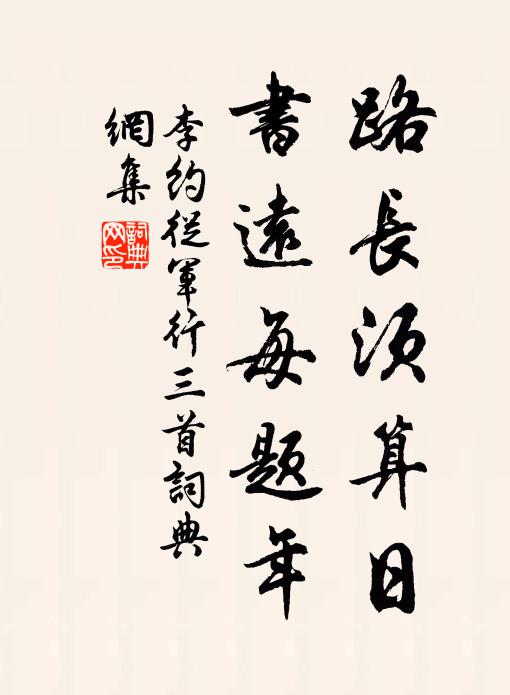 路長須算日
書遠每題年
李約從軍行三首詞典
網集
詞典
网印